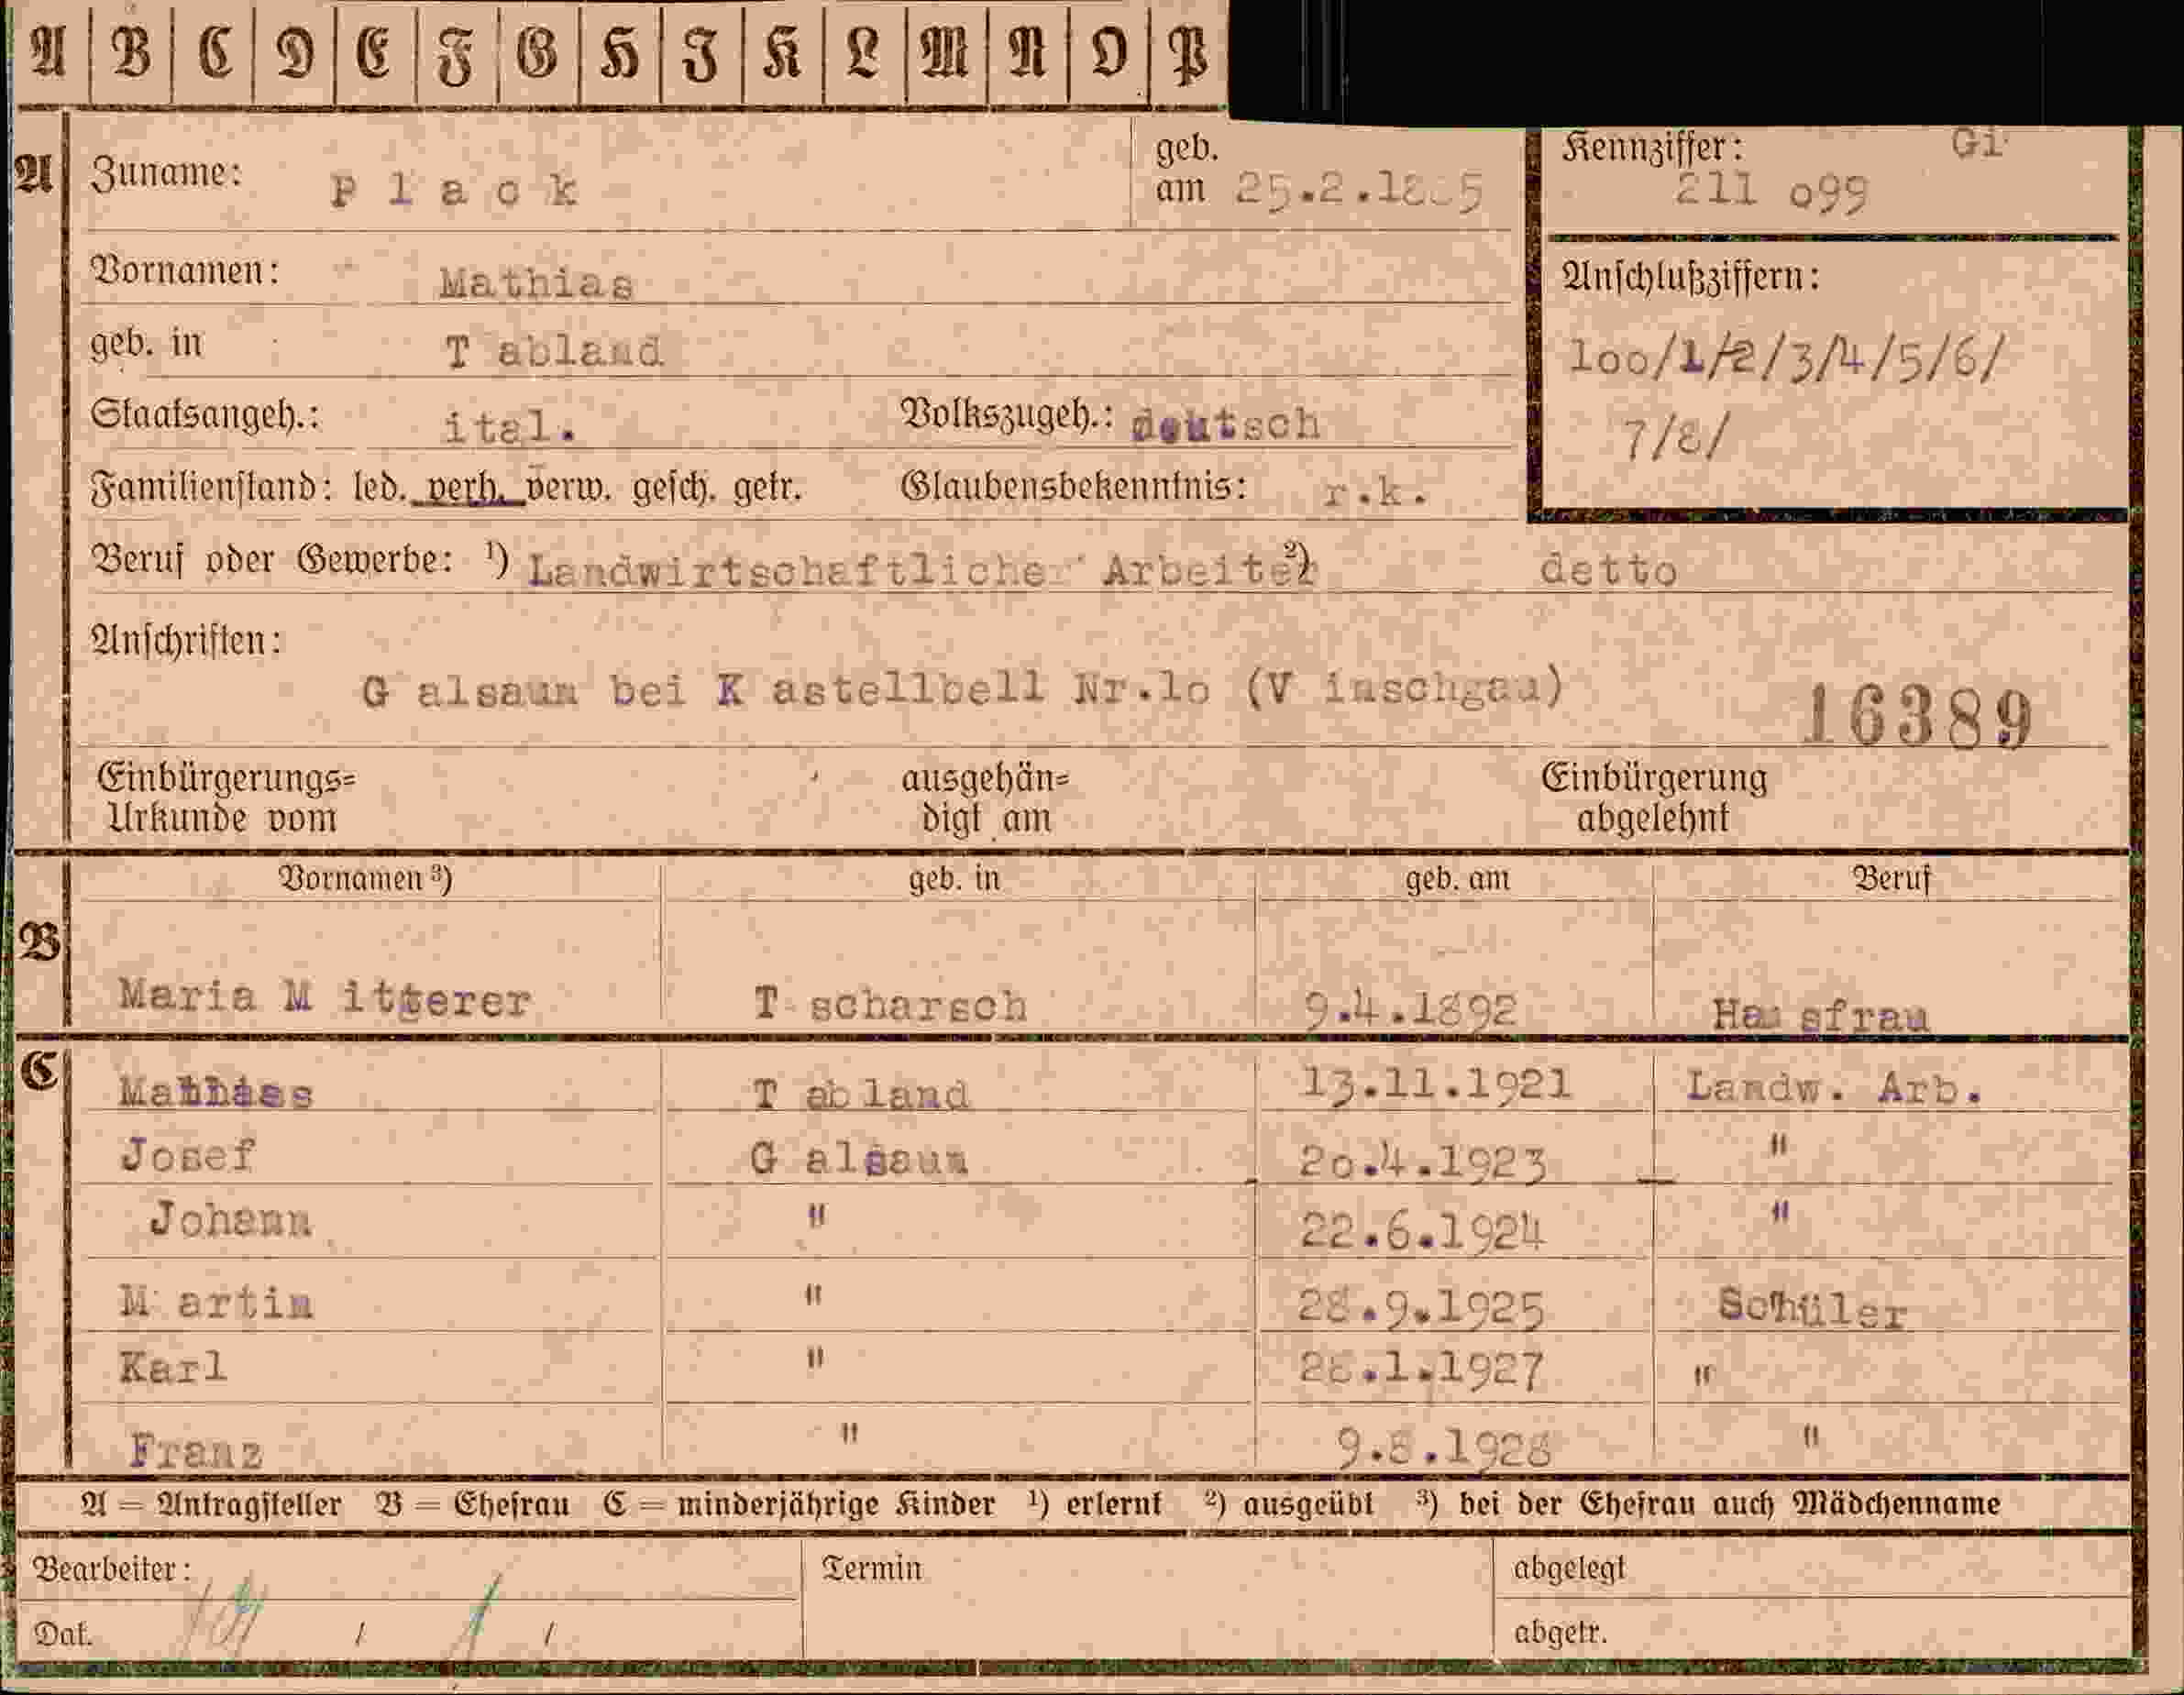 A B C D E F G H I K L M N O P
A Zuname: P l a c k geb. am Kennziffer: Gi
211 o99
Vornamen: Mathias
Anschlußziffern:
geb. in T abland
100/1/2/3/4/5/6/
7/8/
Staatsangeh.: ital. Volkszugeh.: deutsch
Familienstand: led. verh. verw. gesch. getr. Glaubensbekenntnis: r.k.
Beruf oder Gewerbe: ¹) Landwirtschaftlicher Arbeiter ²) detto
Anschriften:
G alsaun bei K astellbell Nr.lo (V inschgau) 16389
Einbürgerungs= ausgehän= Einbürgerung
Urkunde vom digt am abgelehnt
Vornamen ³) geb. in geb. am Beruf
B
Maria M itterer T scharsch 9.4.1892 Hausfrau
C
Mathias T abland 13.11.1921 Landw. Arb.
Josef G alsaun 2o.4.1923 "
Johann " 22.6.1924 "
M artin " 28.9.1925 Schüler
Karl " 28.1.1927 "
Franz " 9.8.1928 "
A = Antragsteller B = Ehefrau C = minderjährige Kinder ¹) erlernt ²) ausgeübt ³) bei der Ehefrau auch Mädchenname
Bearbeiter: Termin abgelegt
Dat. / / abgetr.